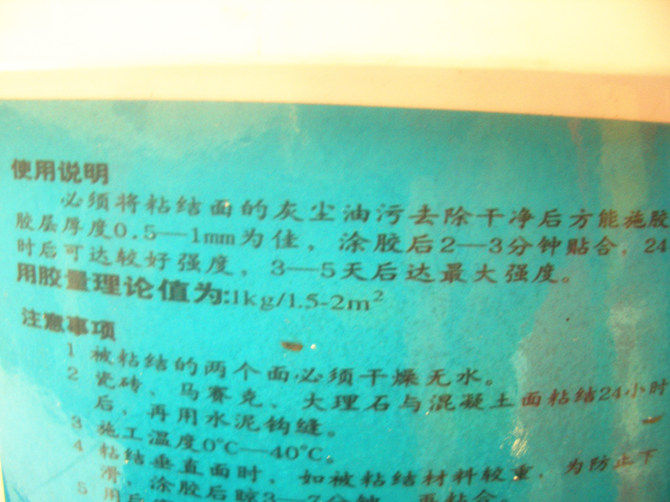 使用说明
必须将粘结面的灰尘油污去除干净后方能施胶
胶层厚度0.5—1mm为佳，涂胶后2—3分钟贴合，24
时后可达较好强度，3—5天后达最大强度。
用胶量理论值为:1kg/1.5-2m²
注意事项
1 被粘结的两个面必须干燥无水。
2 瓷砖、马赛克、大理石与混凝土面粘结24小时
后，再用水泥钩缝。
3 施工温度0°C—40°C。
4 粘结垂直面时，如被粘结材料较重，为防止下
滑，涂胶后晾3—7分钟，再粘合。
5 用后